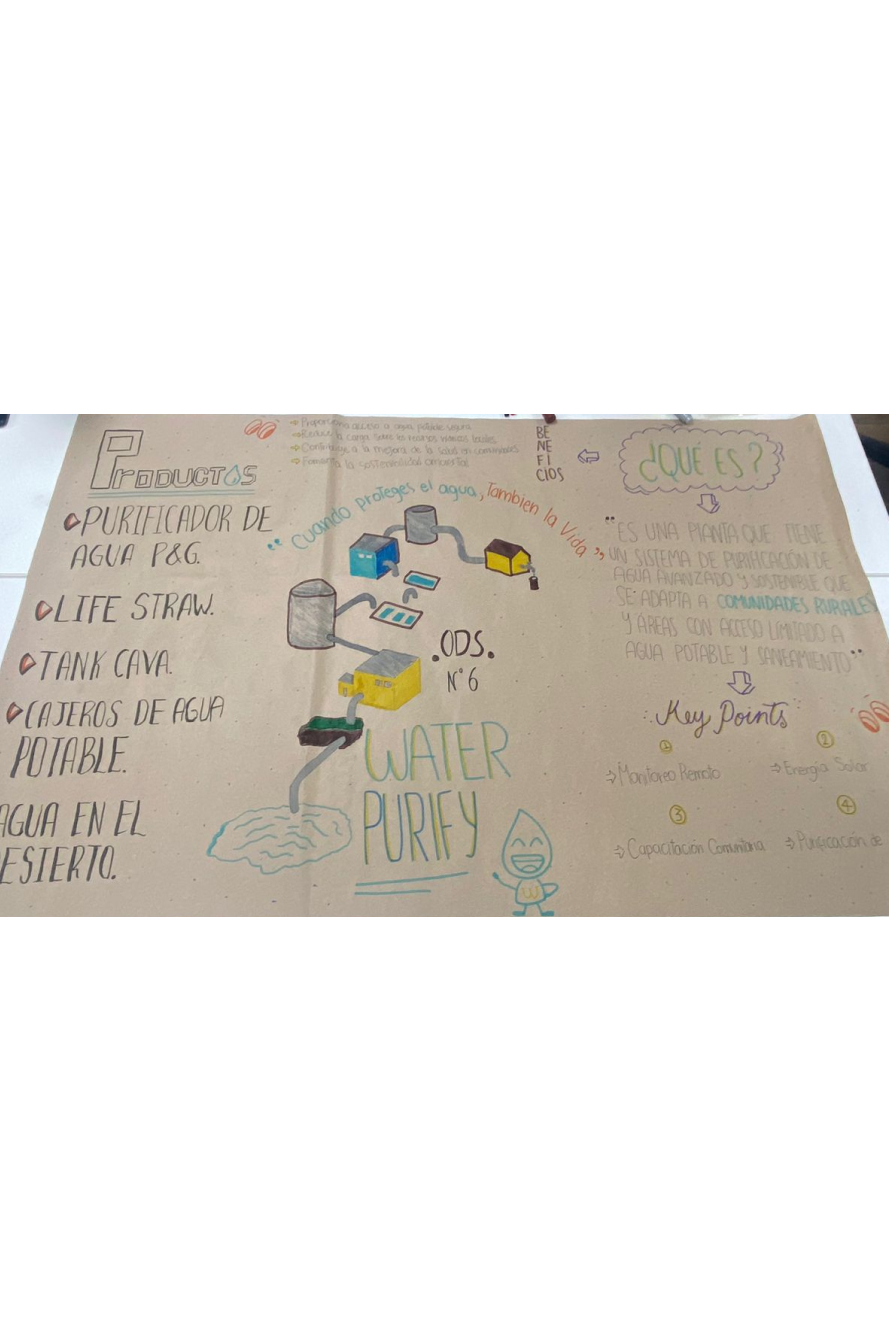 Productos
PURIFICADOR DE
AGUA P&G.
LIFE STRAW.
TANK CAVA.
CAJEROS DE AGUA
POTABLE.
AGUA EN EL
DESIERTO.
→ Proporciona acceso a agua potable segura
→ Reduce la carga sobre los recursos hídricos locales
→ Contribuye a la mejora de la salud en comunidades
→ Fomenta la sostenibilidad ambiental
BE
NE
FI
CIOS
"Cuando proteges el agua, Tambien la Vida"
.ODS.
N°6
WATER
PURIFY
W
¿QUÉ ES?
"ES UNA PLANTA QUE TIENE
UN SISTEMA DE PURIFICACIÓN DE
AGUA AVANZADO Y SOSTENIBLE QUE
SE ADAPTA A COMUNIDADES RURALES
Y ÁREAS CON ACCESO LIMITADO A
AGUA POTABLE Y SANEAMIENTO"
Key Points
1
→ Monitoreo Remoto
2
→ Energía Solar
3
→ Capacitación Comunitaria
4
→ Purificación de